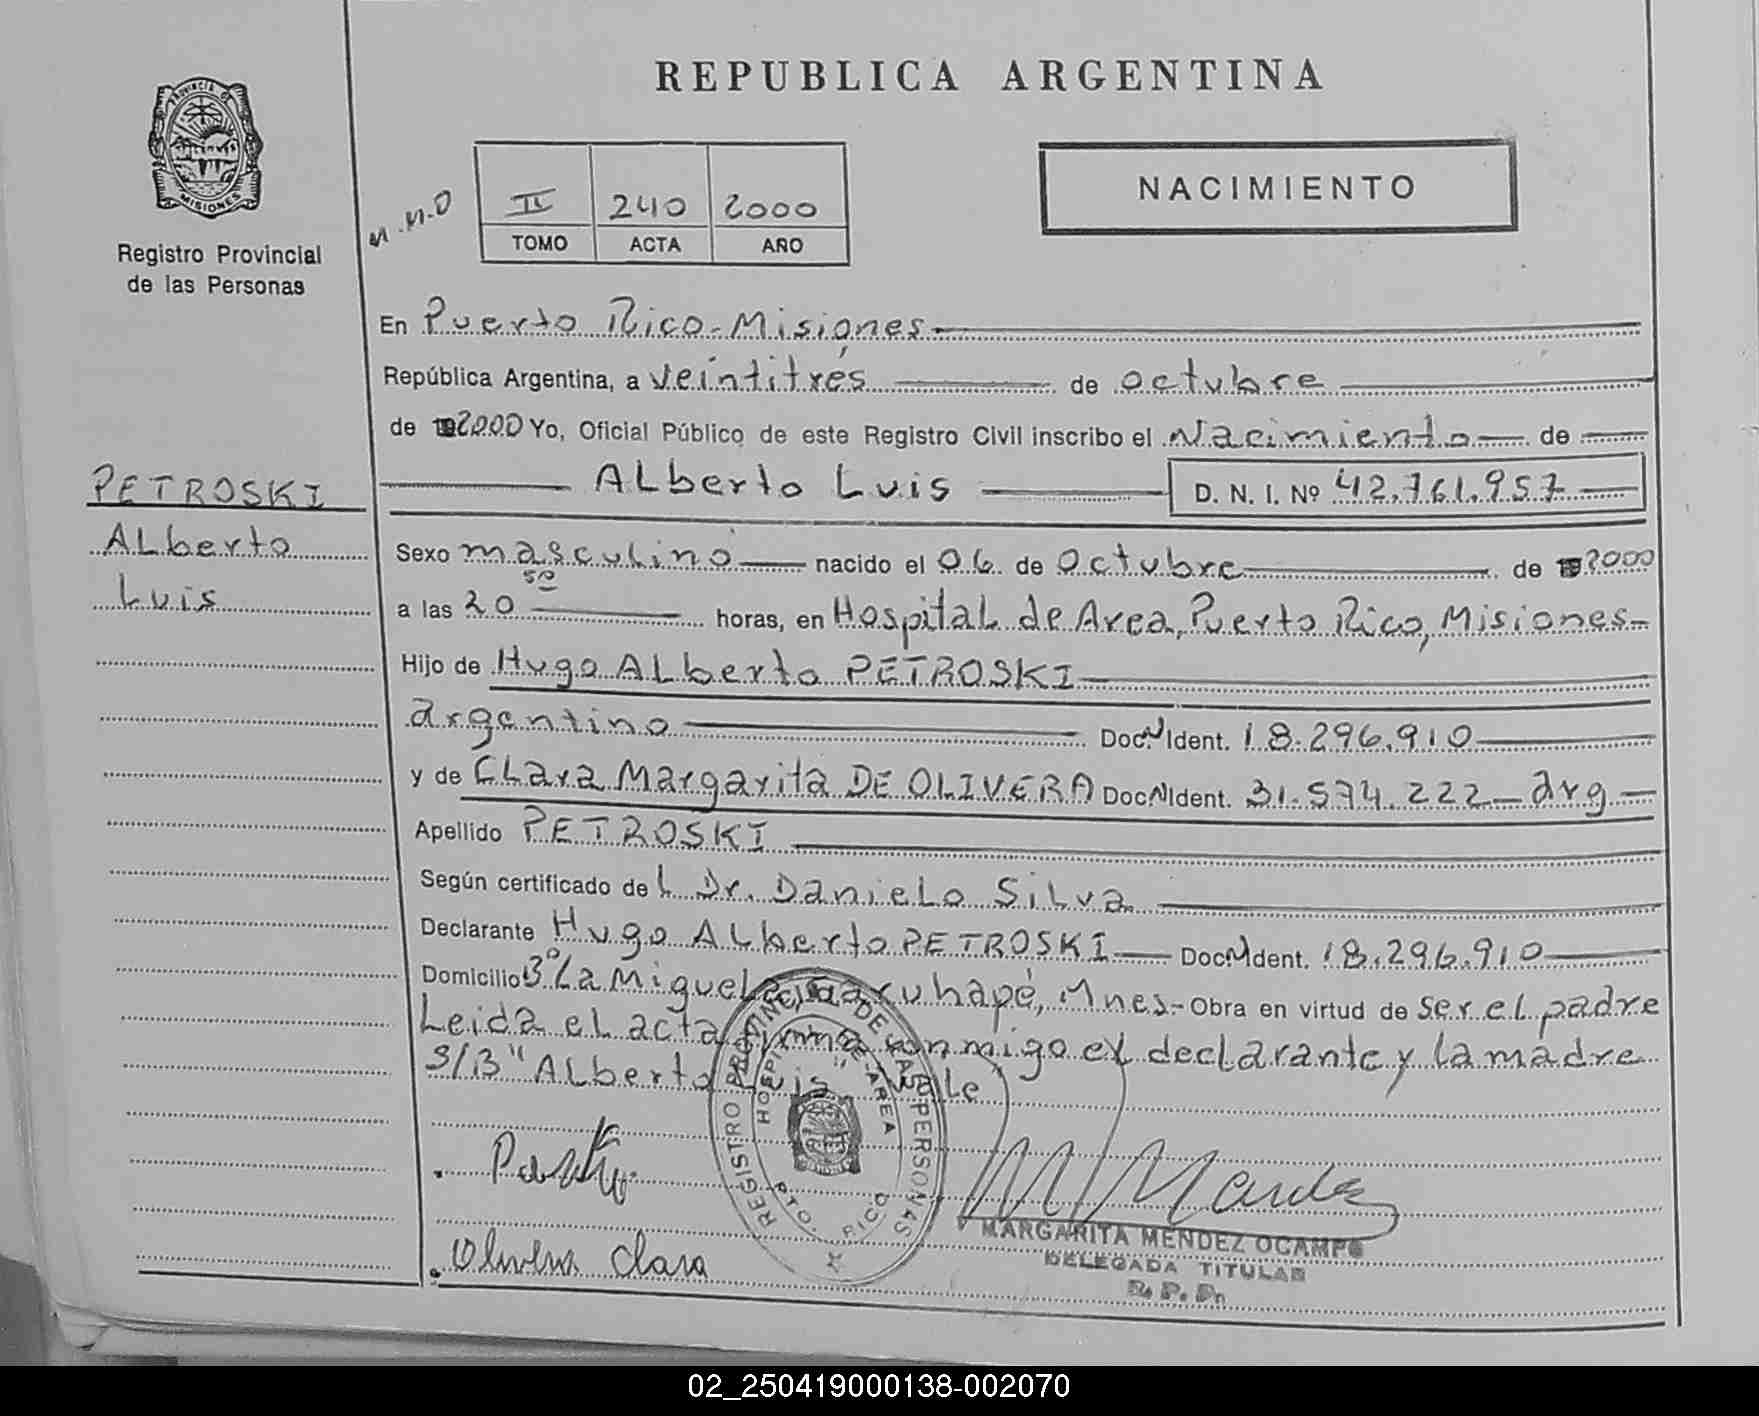 REPUBLICA ARGENTINA
PROVINCIA DE
MISIONES
Registro Provincial
de las Personas
M.M.O
II 240 2000
TOMO ACTA AÑO
NACIMIENTO
En Puerto Rico - Misiones
República Argentina, a veintitrés de octubre
de 2000 Yo, Oficial Público de este Registro Civil inscribo el Nacimiento de
ALberto Luis D. N. I. Nº 42.761.957
PETROSKI
ALberto
Luis
Sexo masculino nacido el 06 de Octubre de 2000
a las 20 50 horas, en HospitaL de Area, Puerto Rico, Misiones
Hijo de Hugo ALberto PETROSKI
argentino Doc.N Ident. 18.296.910
y de CLara Margarita DE OLIVERA Doc.N Ident. 31.574.222 - arg
Apellido PETROSKI
Según certificado de L Dr. DanieLo SiLva
Declarante Hugo ALberto PETROSKI Doc.N Ident. 18.296.910
Domicilio La MigueLa, Garuhapé, Mnes - Obra en virtud de ser eL padre
Leida eL acta firma conmigo eL declarante y la madre
S/B "ALberto Luis" VaLe
REGISTRO PROVINCIAL DE LAS PERSONAS
HOSPITAL DE AREA
PTO. RICO
Olivera Clara
MARGARITA MENDEZ OCAMPO
DELEGADA TITULAR
R. P. P.
02_250419000138-002070